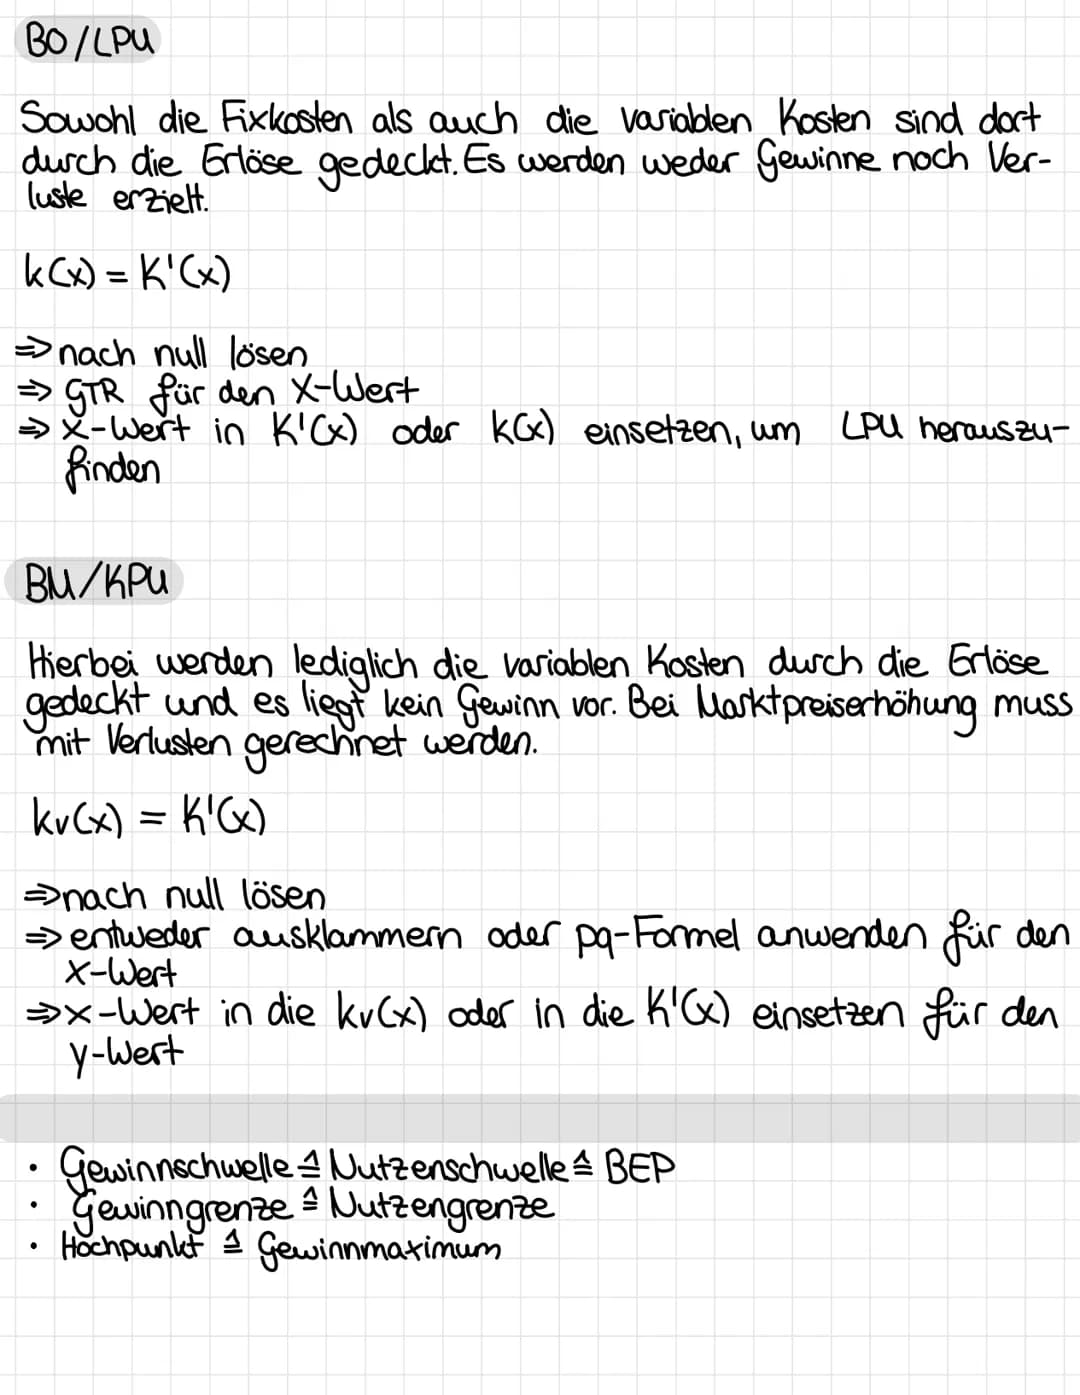 BO/LPU
Sowohl die Fixkosten als auch die variablen Kosten sind dort
durch die Erlöse gedeckt. Es werden weder Gewinne noch Ver-
luste erzielt.
k(x) = K'(x)
⇒ nach null lösen
⇒ GTR für den X-Wert
⇒ X-Wert in K'(x) oder k(x) einsetzen, um LPU herauszu-
finden
BM/KPU
Hierbei werden lediglich die variablen Kosten durch die Erlöse
gedeckt und es liegt kein Gewinn vor. Bei Marktpreiserhöhung muss
mit Verlusten gerechnet werden.
kv(x) = K'(x)
⇒ nach null lösen
⇒ entweder ausklammern oder pq-Formel anwenden für den
X-Wert
⇒ x-Wert in die kv(x) oder in die K'(x) einsetzen für den
y-Wert
• Gewinnschwelle ≙ Nutzenschwelle ≙ BEP
• Gewinngrenze ≙ Nutzengrenze
• Hochpunkt ≙ Gewinnmaximum